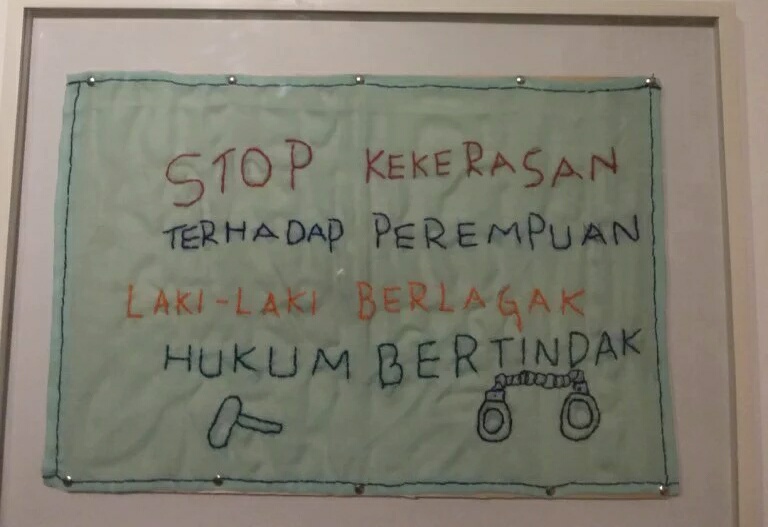 STOP KEKERASAN
TERHADAP PEREMPUAN
LAKI-LAKI BERLAGAK
HUKUM BERTINDAK